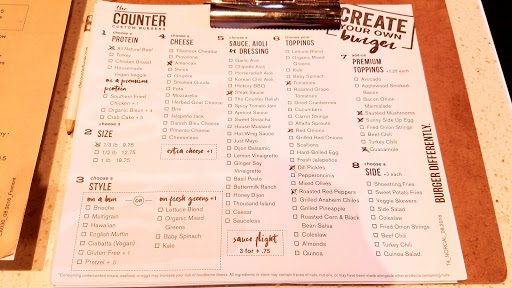 the
COUNTER
CUSTOM BURGERS
CREATE
YOUR OWN
burger
1 choose a
PROTEIN
All Natural Beef
Turkey
Chicken Breast
Housemade
Vegan Veggie
as a premium
protein
Southern Fried
Chicken +1
Organic Bison +4
Crab Cake +3
2 choose a
SIZE
1/3 lb 9.75
1/2 lb 12.75
1 lb 18.75
3 choose a
STYLE
on a bun
Brioche
Multigrain
Hawaiian
English Muffin
Ciabatta (Vegan)
Gluten-Free +1
Pretzel +.5
OR
on fresh greens +1
Lettuce Blend
Organic Mixed
Greens
Baby Spinach
Kale
4 choose a
CHEESE
Tillamook Cheddar
Provolone
American
Gruyère
Smoked Gouda
Feta
Mozzarella
Herbed Goat Cheese
Brie
Jalapeño Jack
Danish Bleu Cheese
Pimento Cheese
Cheeseless
extra cheese +1
5 choose a
SAUCE, AIOLI
or DRESSING
Garlic Aioli
Chipotle Aioli
Horseradish Aioli
Korean Chili Aioli
Hickory BBQ
Steak Sauce
The Counter Relish
Spicy Tomato Jam
Apricot Sauce
Sweet Sriracha
House Mustard
Hot Wing Sauce
Just Mayo
Dijon Balsamic
Lemon Vinaigrette
Ginger Soy
Vinaigrette
Basil Pesto
Buttermilk Ranch
Honey Dijon
Thousand Island
Caesar
Sauceless
sauce flight
3 for +.75
6
TOPPINGS
Lettuce Blend
Organic Mixed
Greens
Kale
Baby Spinach
Tomatoes
Roasted Grape
Tomatoes
Dried Cranberries
Cucumbers
Carrot Strings
Alfalfa Sprouts
Red Onions
Grilled Red Onions
Scallions
Hard-Boiled Egg
Fresh Jalapeños
Dill Pickles
Pepperoncinis
Mixed Olives
Roasted Red Peppers
Grilled Anaheim Chiles
Grilled Pineapple
Roasted Corn & Black
Bean Salsa
Coleslaw
Almonds
Quinoa
7 add-on
PREMIUM
TOPPINGS +1.25 each
Avocado
Applewood Smoked
Bacon
Bacon Onion
Marmalade
Sautéed Mushrooms
Sunny Side Up Egg
Fried Onion Strings
Beef Chili
Turkey Chili
Guacamole
8 choose a
SIDE +3 each
Shoestring Fries
Sweet Potato Fries
Veggie Skewers
Side Salad
Coleslaw
Fried Onion Strings
Beef Chili
Turkey Chili
Quinoa Salad
BURGER DIFFERENTLY.